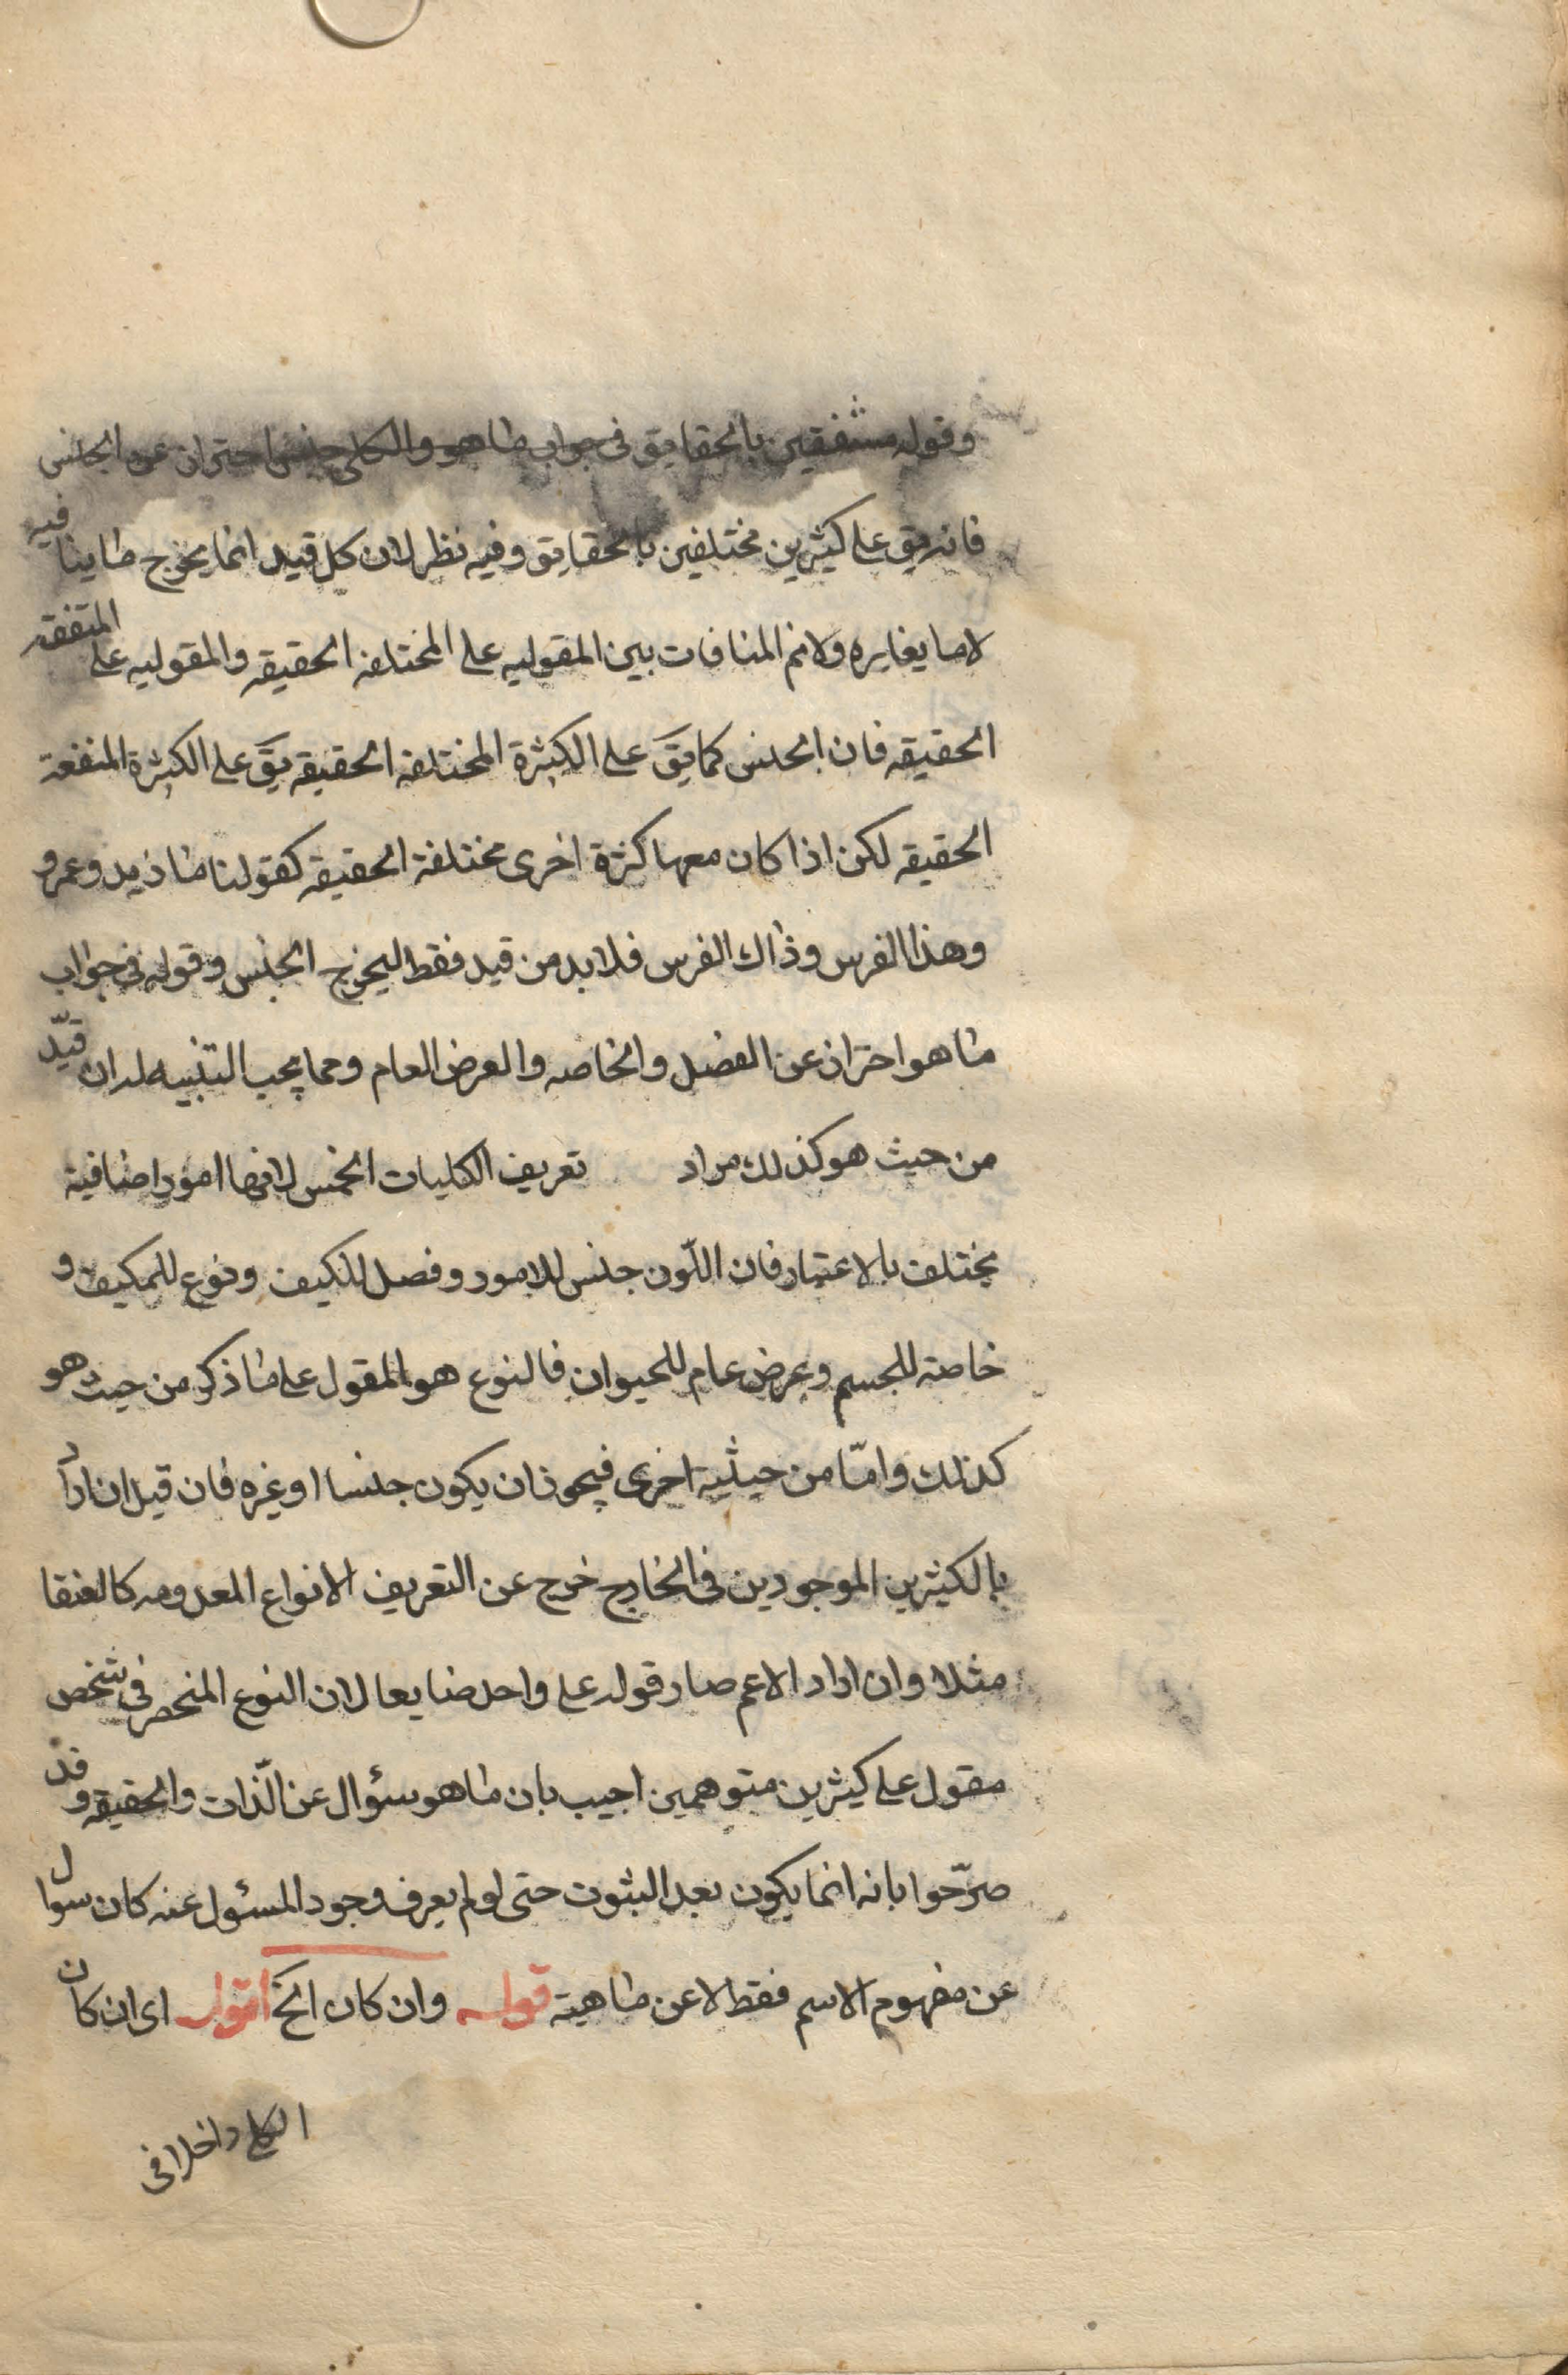 وقوله متفقين بالحقايق فى جواب ما هو والكلى جنس احتراز عن الجنس
فانه يق على كثيرين مختلفين بالحقايق وفيه نظر لان كل قيد انما يخرج ما ينافيه
لا ما يغايره ولانم المنافات بين المقوليه على المختلفه الحقيقه والمقوليه على المتفقه
الحقيقه فان الجنس كما يق على الكثرة المختلفه الحقيقه يق على الكثرة المتفقة
الحقيقه لكن اذا كان معها كثرة اخرى مختلفة الحقيقه كقولنا ما زيد وعمرو
وهذا الفرس وذاك الفرس فلا بد من قيد فقط ليخرج الجنس وقوله فى جواب
ما هو احتراز عن الفصل والخاصه والعرض العام ومما يجب التنبيه له ان قيد
من حيث هو كذلك مراد تعريف الكليات الخمس لانها امور اضافية
يختلف بالاعتبار فان اللّون جنس للاسود وفصل للكيف ونوع للمكيف و
خاصة للجسم وعرض عام للحيوان فالنوع هو المقول على ما ذكر من حيث هو
كذلك وامّا من حيثية اخرى فيجوز ان يكون جنسا او غيره فان قيل ان اراد
بالكثيرين الموجودين فى الخارج خرج عن التعريف الانواع المعدومه كالعنقا
مثلا وان اراد الاعم صار قوله على واحد ضايعا لان النوع المنحصر فى شخص
مقول على كثيرين متوهمين اجيب بان ما هو سؤال عن الّذات والحقيقه وقد
صرّحوا بانه انما يكون بعد الثبوت حتى لو لم يعرف وجود المسئول عنه كان سوال
عن مفهوم الاسم فقط لا عن ماهيته قوله وان كان الخ اقول اى ان كان
الكلى داخلا فى